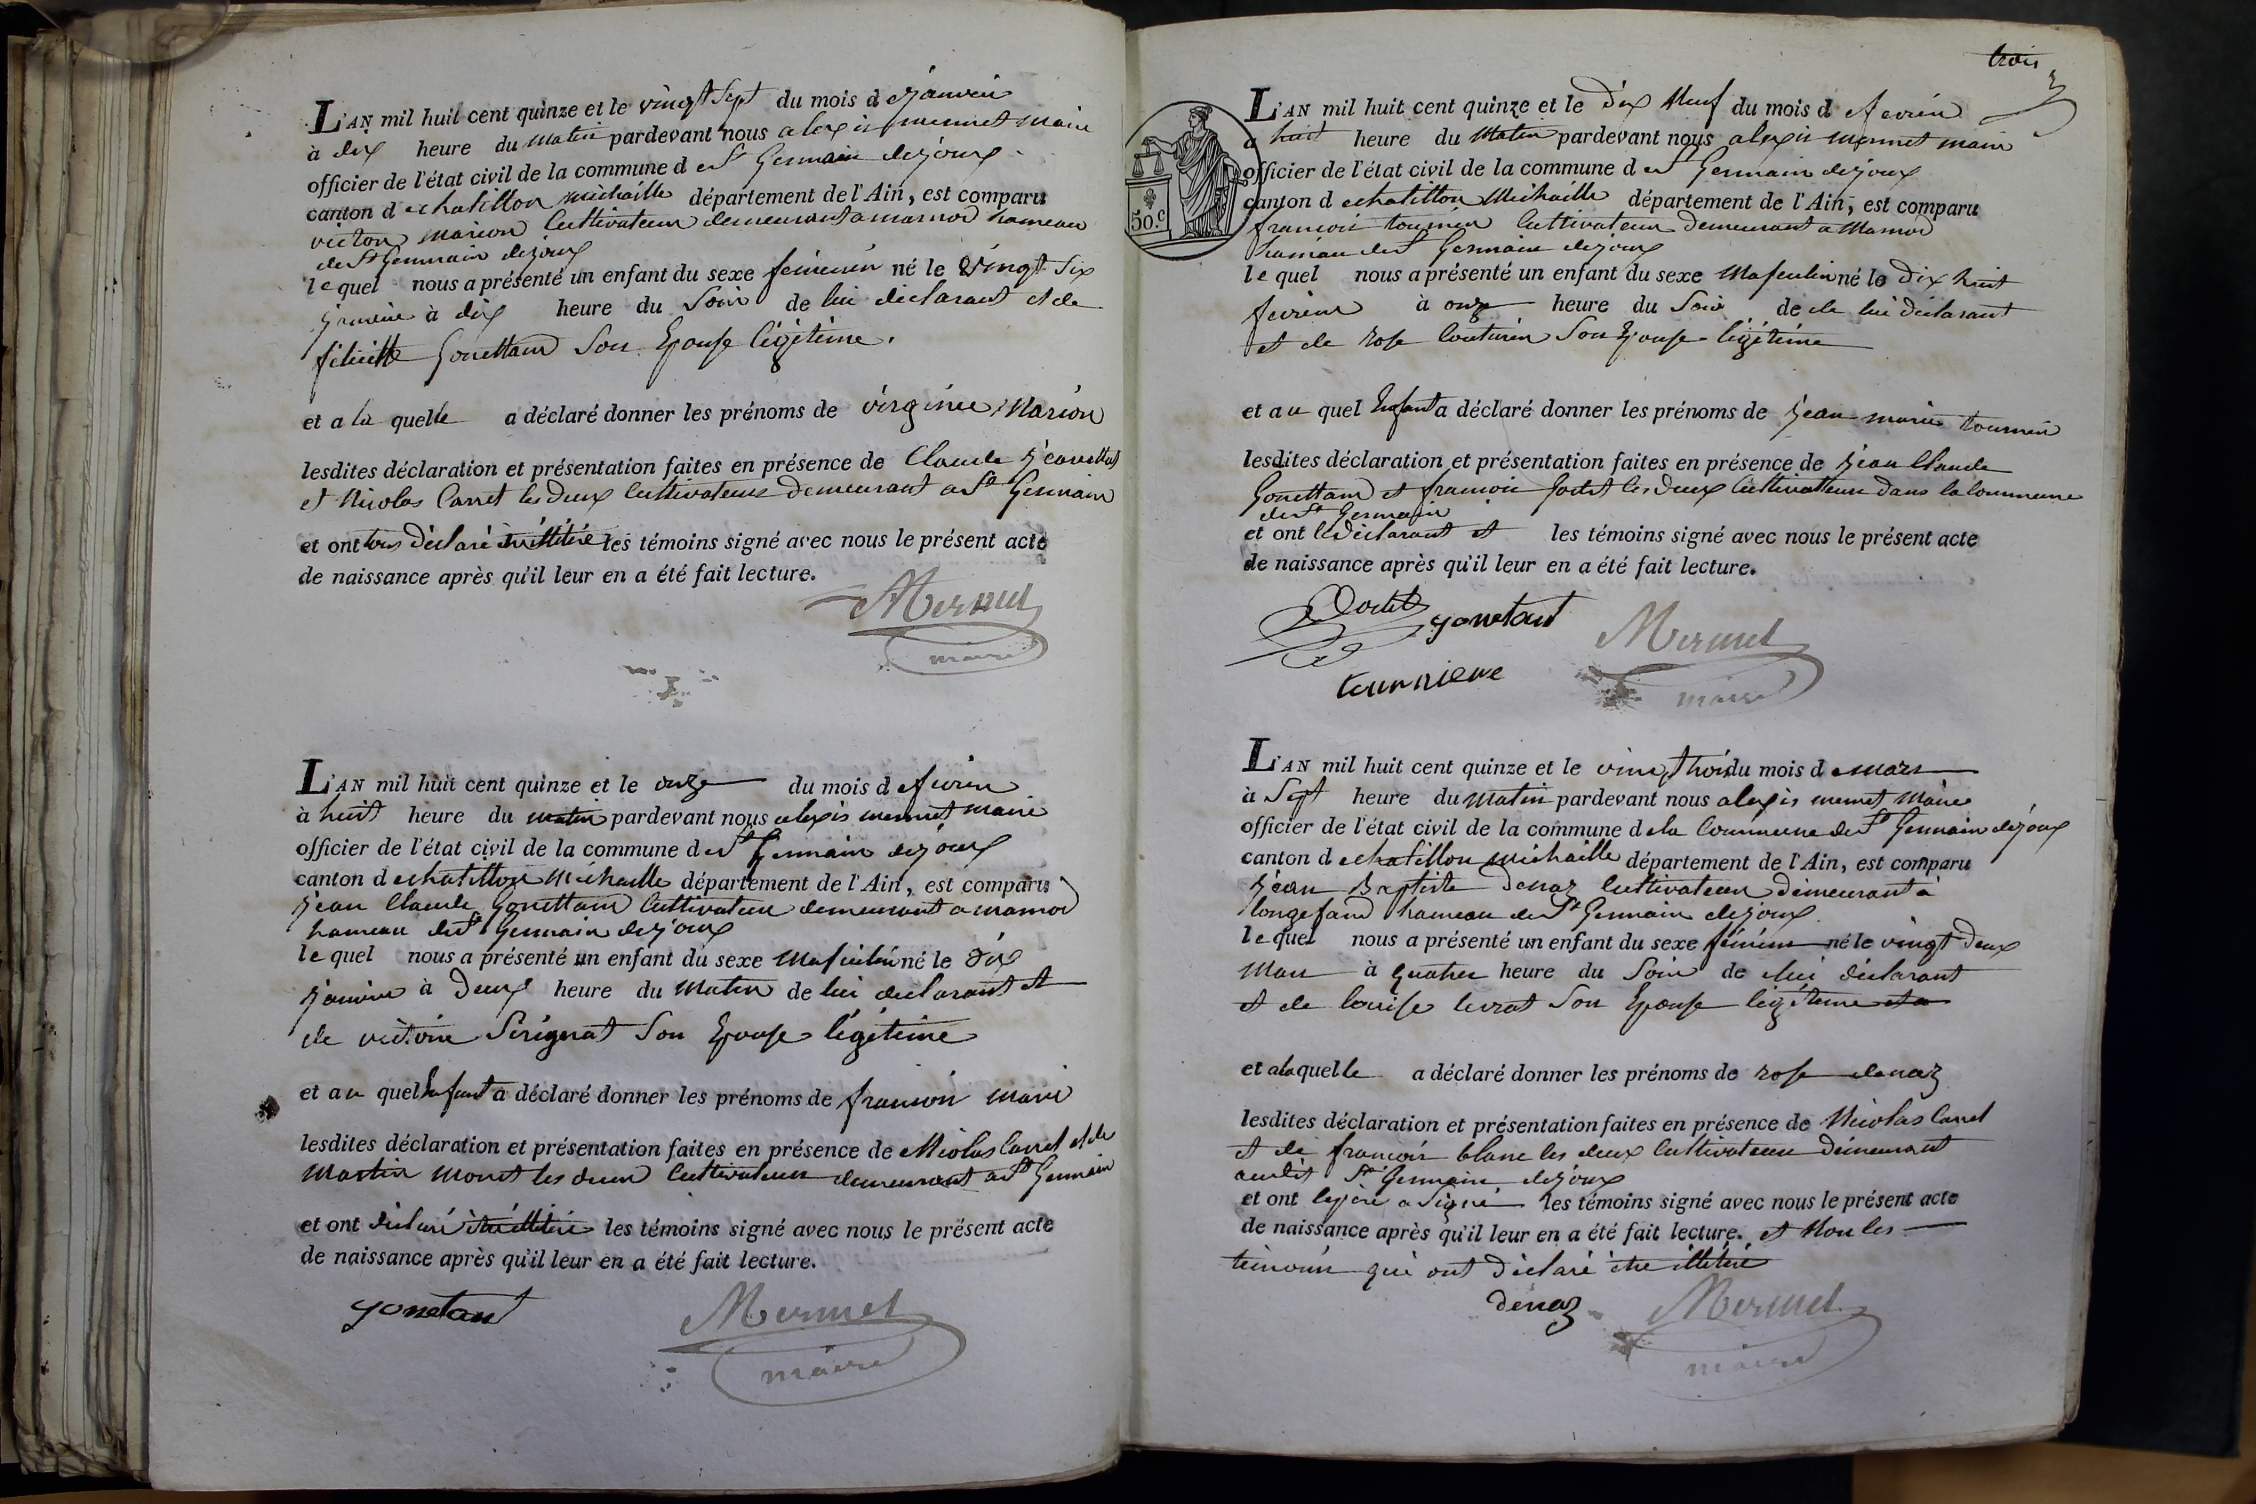 L'AN mil huit cent quinze et le vingt Sept du mois de janvier
à dix heure du matin pardevant nous alexis mermet maire
officier de l'état civil de la commune de St Germain dejoux
canton de chatillon michaille département de l'Ain, est comparu
victor marion Cultivateur demeurant a marnod hameau
de St Germain dejoux
lequel nous a présenté un enfant du sexe féminin né le vingt Six
janvier à dix heure du Soir de lui déclarant et de
félicitté Gonettand Son Epouse légitime.
et a la quelle a déclaré donner les prénoms de virginie Marion
lesdites déclaration et présentation faites en présence de Claude
et Nicolas Carret les deux Cultivateurs demeurant a St Germain
et ont tous déclaré être illitéré les témoins signé avec nous le présent acte
de naissance après qu'il leur en a été fait lecture.
Mermet
maire
L'AN mil huit cent quinze et le onze du mois de fevrier
à huit heure du matin pardevant nous alexis mermet maire
officier de l'état civil de la commune de St Germain dejoux
canton de chatillon Michaille département de l'Ain, est comparu
jean Claude Gonettand Cultivateur demeurant a marnod
hameau de St Germain dejoux
lequel nous a présenté un enfant du sexe Masculin né le dix
janvier à Deux heure du Matin de lui declarant et
de victoire Sérignat Son Epouse légitime
et au quel Enfant a déclaré donner les prénoms de francois marie
lesdites déclaration et présentation faites en présence de Nicolas Carret et de
Martin Monet les deux Cultivateurs demeurant a St Germain
et ont déclaré être illitéré les témoins signé avec nous le présent acte
de naissance après qu'il leur en a été fait lecture.
gonetant
Mermet
maire
trois
3
50.c
L'AN mil huit cent quinze et le Dix Neuf du mois de fevrier
a huit heure du Matin pardevant nous alexis mermet maire
officier de l'état civil de la commune de St Germain dejoux
canton de chatillon Michaille département de l'Ain, est comparu
francois tournier Cultivateur Demeurant a Marnod
hameau de St Germain dejoux
lequel nous a présenté un enfant du sexe Masculin né le Dix huit
fevrier à onze heure du Soir de de lui déclarant
et de rose Couturier Son Epouse légitime
et au quel Enfant a déclaré donner les prénoms de jean marie tournier
lesdites déclaration et présentation faites en présence de jean Claude
Gonettand et francois les Deux Cultivatteurs dans la Commune
de St Germain
et ont le déclarant et les témoins signé avec nous le présent acte
de naissance après qu'il leur en a été fait lecture.
gonetant
Mermet
tourniere
maire
L'AN mil huit cent quinze et le vingt trois du mois de mars
à Sept heure du matin pardevant nous alexis mermet Maire
officier de l'état civil de la commune de la Commune de St Germain dejoux
canton de chatillon michaille département de l'Ain, est comparu
jean Baptiste Denaz Cultivateur demeurant à
longefand hameau de St Germain dejoux
lequel nous a présenté un enfant du sexe féminin né le vingt Deux
Mars à quatre heure du Soir de lui déclarant
et de louise levrat Son Epouse légitime et a
et a laquelle a déclaré donner les prénoms de rose denaz
lesdites déclaration et présentation faites en présence de Nicolas Carret
et de francois blanc les deux Cultivateurs Demeurant
audit St Germain dejoux
et ont le père a Signé les témoins signé avec nous le présent acte
de naissance après qu'il leur en a été fait lecture. et Non les
temoins qui ont déclaré être illitéré
denaz
Mermet
maire